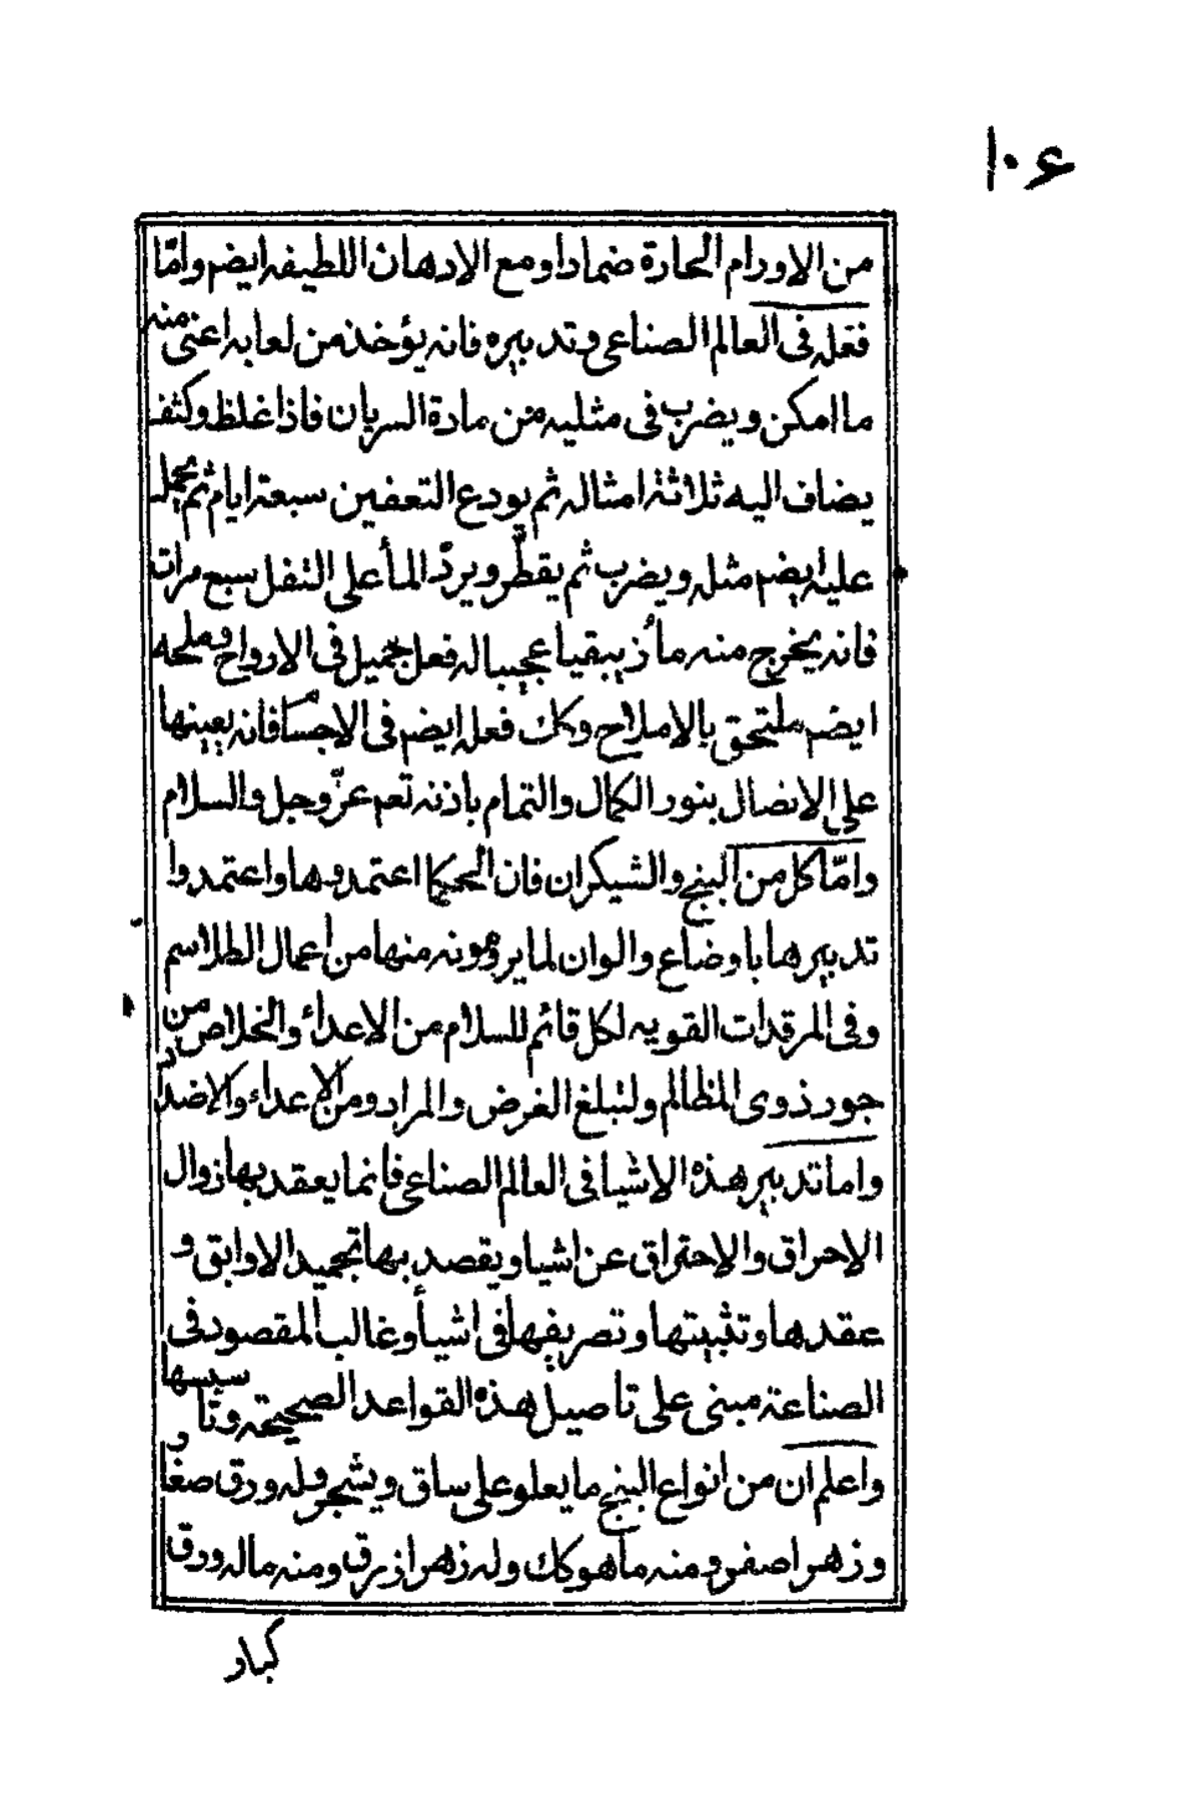 ١٠۶
من الاورام الحارة ضمادا ومع الادهان اللطيفه ايضم وامّا
فعله فى العالم الصناعى وتدبيره فانه يؤخذ من لعابه اعنى منه
ما امكن ويضرب فى مثليه من مادة السريان فاذا غلظ وكثف
يضاف اليه ثلاثة امثاله ثم يودع التعفين سبعة ايام ثم يحمل
عليه ايضم مثله ويضرب ثم يقطّر ويردّ المأ على الثفل سبع مرات
فانه يخرج منه مأ زيبقيا عجيبا له فعل جميل فى الارواح وملحه
ايضم ملتحق بالاملاح وكك فعله ايضم فى الاجسا فانه يعينها
على الاتصال بنور الكمال والتمام باذنه تعم عزّ وجل والسلام
وامّا كل من البنج والشيكران فان الحكما اعتمدوها واعتمدوا
تدبيرها باوضاع والوان لما يرومونه منها من اعمال الطلاسم
وفى المرقدات القويه لكل قائم للسلام من الاعداء والخلاص من
جور ذوى المظالم ولتبلغ الغرض والمراد ومن الاعداء والاضداد
واما تدبير هذه الاشيا فى العالم الصناعى فانما يعقد بها زوال
الاحراق والاحتراق عن اشيا ويقصد بها تجميد الاوابق و
عقدها وتثبيتها وتصريفها فى اشيأ وغالب المقصود فى
الصناعة مبنى على تاصيل هذه القواعد الصحيحة وتاسيسها
واعلم ان من انواع البنج ما يعلو على ساق ويشجر وله ورق صغار
وزهر اصفر ومنه ما هو كك وله زهر ازرق ومنه ماله ورق
كبار